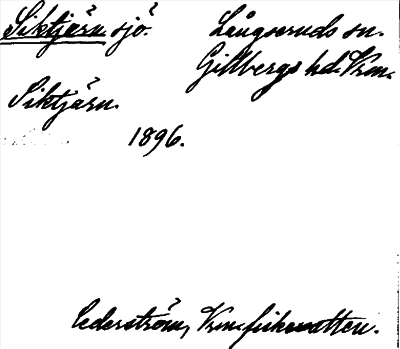 Siktjärn sjö. Långseruds sn.
Gillbergs hd. Vrm.
Siktjärn.
1896.
Cederström, Vrm fiskevatten.